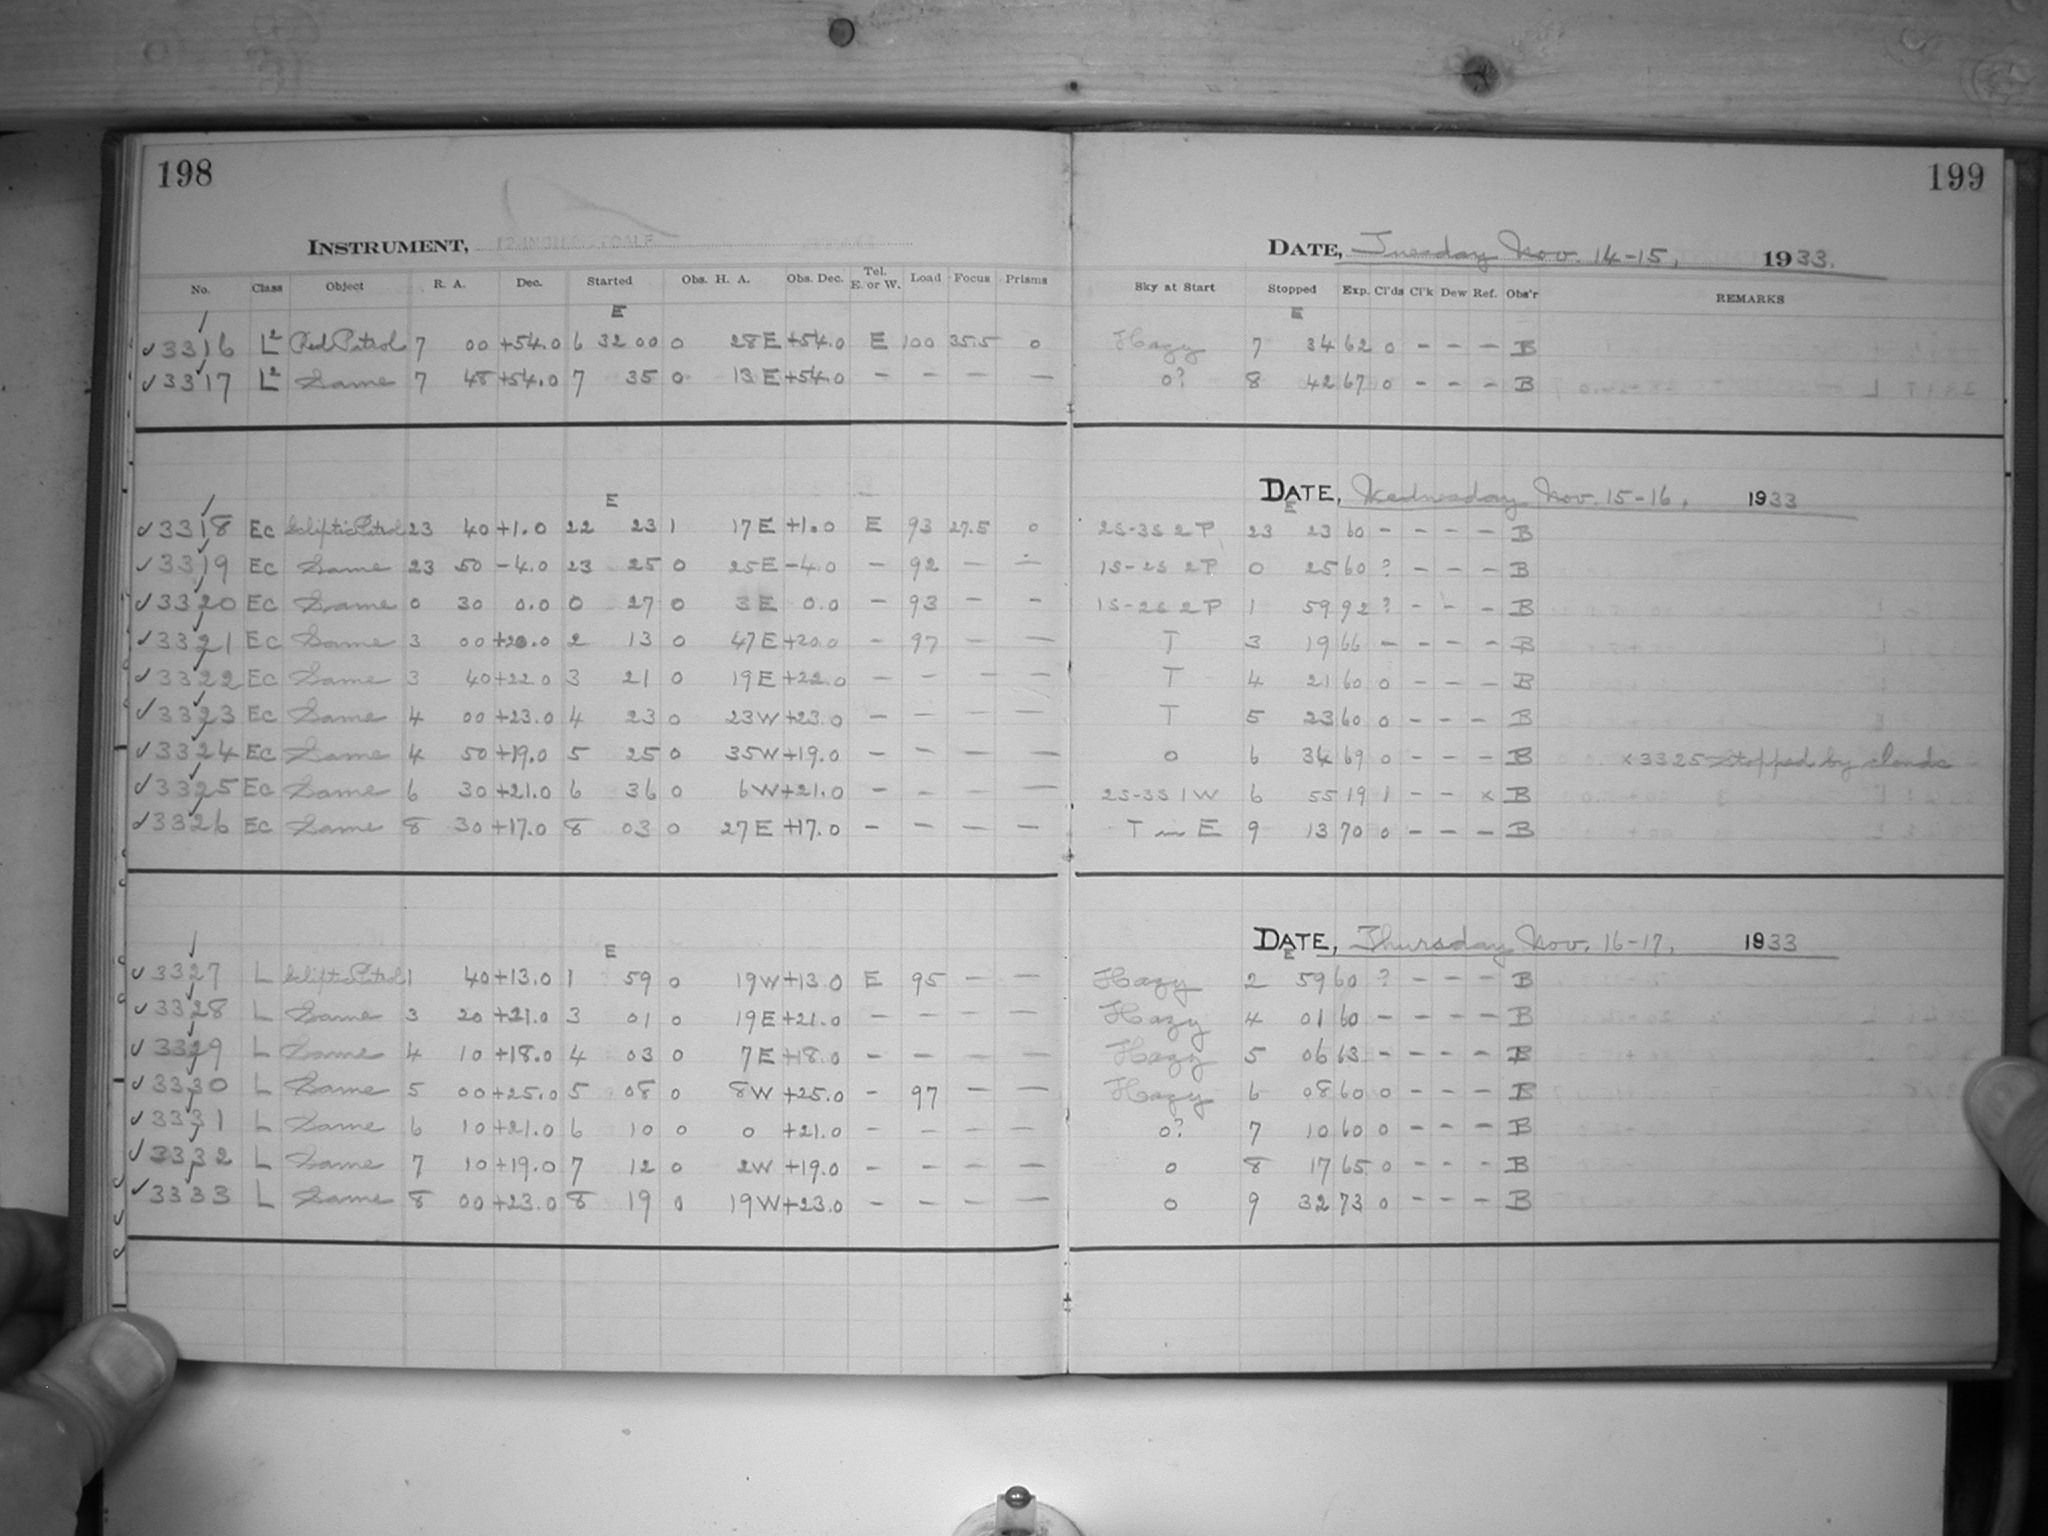 198
199
INSTRUMENT,
DATE, Tuesday Nov. 14-15, 1933.
No. Class Object R. A. Dec. Started Obs. H. A. Obs. Dec. Tel. E. or W. Load Focus Prisms Sky at Start Stopped Exp. Cl'ds Cl'k Dew Ref. Obs'r REMARKS
E E
✓3316 L² Red Patrol 7 00 +54.0 6 32 00 0 28 E +54.0 E 100 35.5 0 Hazy 7 34 62 0 - - - B
✓3317 L² Same 7 48 +54.0 7 35 0 13 E +54.0 - - - - 0? 8 42 67 0 - - - B
DATE, Wednesday Nov. 15-16, 1933
E E
✓3318 Ec Ecliptic Patrol 23 40 +1.0 22 23 1 17 E +1.0 E 93 27.5 0 2S-3S 2P 23 23 60 - - - - B
✓3319 Ec Same 23 50 -4.0 23 25 0 25 E -4.0 - 92 - - 1S-2S 2P 0 25 60 ? - - - B
✓3320 Ec Same 0 30 0.0 0 27 0 3 E 0.0 - 93 - - 1S-2S 2P 1 59 92 ? - - - B
✓3321 Ec Same 3 00 +20.0 2 13 0 47 E +20.0 - 97 - - T 3 19 66 - - - - B
✓3322 Ec Same 3 40 +22.0 3 21 0 19 E +22.0 - - - - T 4 21 60 0 - - - B
✓3323 Ec Same 4 00 +23.0 4 23 0 23 W +23.0 - - - - T 5 23 60 0 - - - B
✓3324 Ec Same 4 50 +19.0 5 25 0 35 W +19.0 - - - - 0 6 34 69 0 - - - B x3325 stopped by clouds
✓3325 Ec Same 6 30 +21.0 6 36 0 6 W +21.0 - - - - 2S-3S 1W 6 55 19 1 - - x B
✓3326 Ec Same 8 30 +17.0 8 03 0 27 E +17.0 - - - - T in E 9 13 70 0 - - - B
DATE, Thursday Nov. 16-17, 1933
E E
✓3327 L Ecliptic Patrol 1 40 +13.0 1 59 0 19 W +13.0 E 95 - - Hazy 2 59 60 ? - - - B
✓3328 L Same 3 20 +21.0 3 01 0 19 E +21.0 - - - - Hazy 4 01 60 - - - - B
✓3329 L Same 4 10 +18.0 4 03 0 7 E +18.0 - - - - Hazy 5 06 63 - - - - B
✓3330 L Same 5 00 +25.0 5 08 0 8 W +25.0 - 97 - - Hazy 6 08 60 0 - - - B
✓3331 L Same 6 10 +21.0 6 10 0 0 +21.0 - - - - 0? 7 10 60 0 - - - B
✓3332 L Same 7 10 +19.0 7 12 0 2 W +19.0 - - - - 0 8 17 65 0 - - - B
✓3333 L Same 8 00 +23.0 8 19 0 19 W +23.0 - - - - 0 9 32 73 0 - - - B